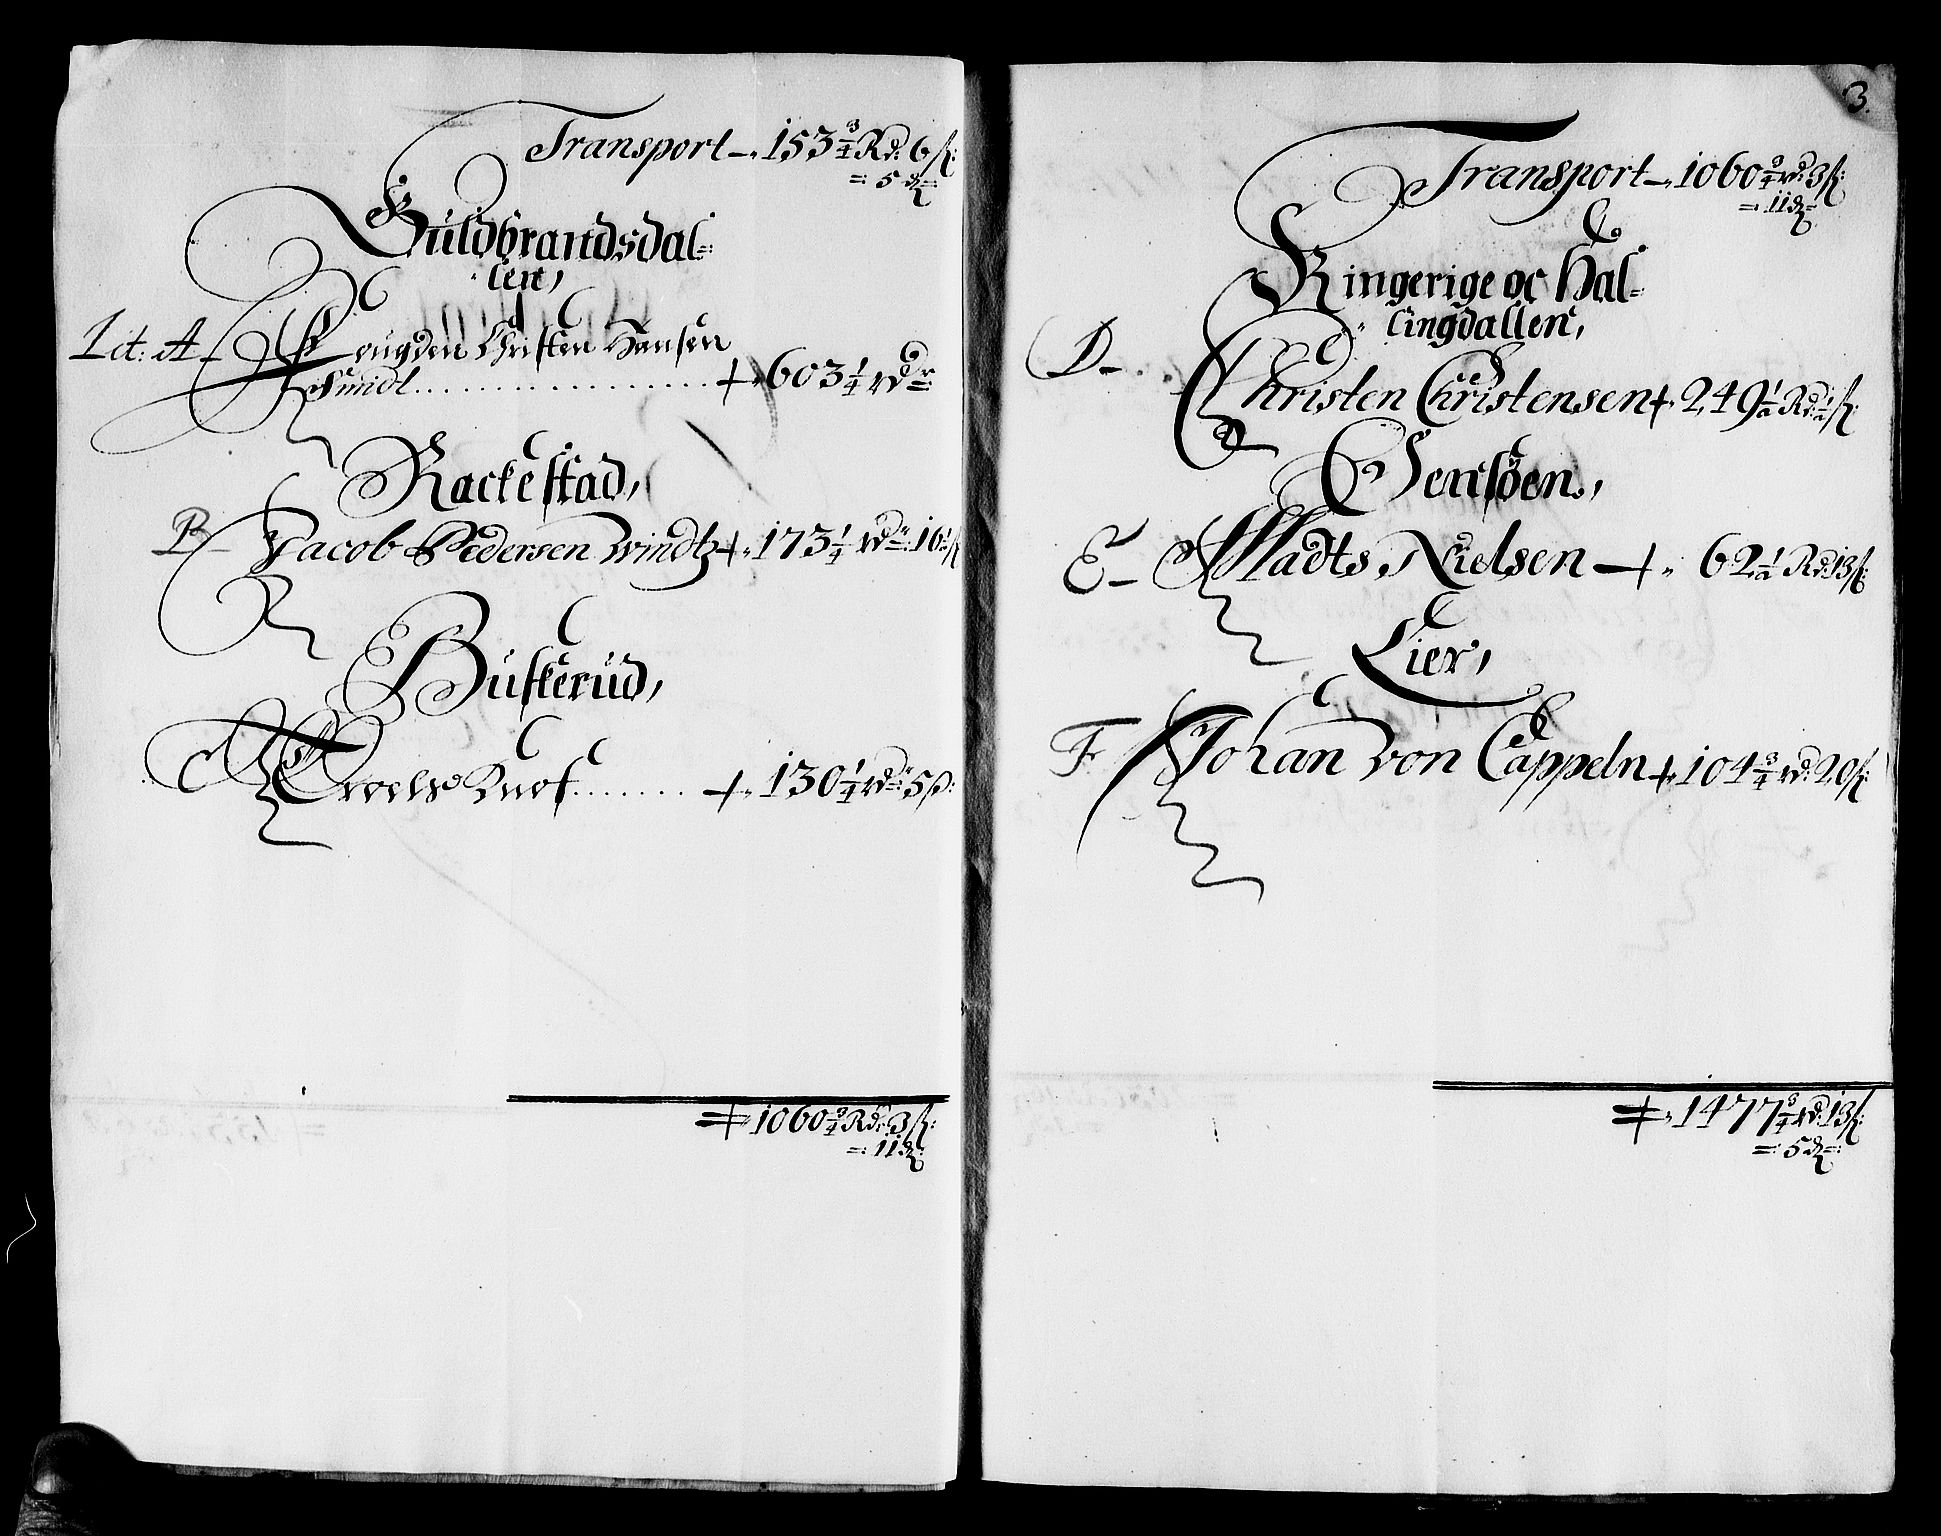 Transport – 153 3/4 Rd: 6 ß:
= 5 d =
Guldbrandsdal=
len,
Lit: A – Fougden Christen Hansen
Smidt.................... + 603 1/4 rdr
Rackestad,
B – Jacob Pedersen Windtz + 173 1/4 rdr: 16 1/2 ß
Buskerud,
C Troels Knof....... + 130 1/4 rdr: 5 ß:
+ 1060 3/4 Rd: 3 ß:
= 11 d:
3.
Transport – 1060 3/4 rd: 3 ß:
= 11 d =
Ringerige oc Hal=
lingdallen,
D – Christen Christensen + 249 1/2 Rd: 1/2 ß:
Jensöen,
E – Madts Nielsen + 62 1/2 Rd: 13 ß:
Lier,
F Johan von Cappeln + 104 3/4 rd: 20 ß:
+ 1477 3/4 rd: 13 ß:
= 5 d =